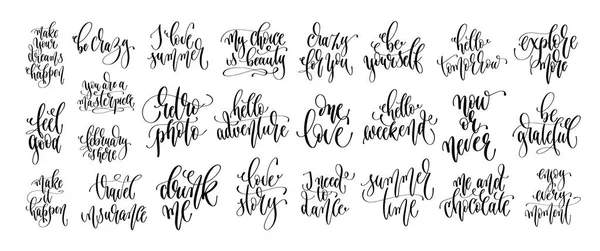 make
your
dreams
happen
be crazy
I love
summer
my choice
is beauty
crazy
for you
be
yourself
hello
tomorrow
explore
more
you are a
masterpiece
feel
good
february
is here
retro
photo
hello
adventure
one
love
hello
weekend
now
or
never
be
grateful
make
it
happen
travel
insurance
drink
me
love
story
I need
to
dance
summer
time
me and
chocolate
enjoy
every
moment